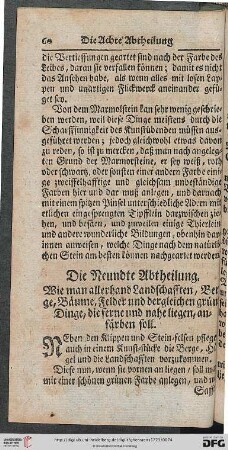 60 Die Achte Abtheilung
die Vertieffungen geartet sind nach der Farbe des
Leibes, daran sie verfallen können; damit es nicht
das Ansehen habe, als wenn alles mit losen Lap-
pen und unartigen Flickwerck aneinander gefü-
get sey.
Von dem Marmolstein kan sehr wenig geschrie-
ben werden, weil diese Dinge meistens durch die
Scharffsinnigkeit des Kunstübenden müssen aus-
geführet werden; jedoch gleichwol etwas davon
zu reden, so ist zu mercken, daß man nach angeleg-
ten Grund der Marmorsteine, er sey weiß, roth
oder schwartz, oder sonsten einer andern Farbe eini-
ge zweiffelhafftige und gleichsam unbeständige
Farben hier und dar muß anlegen, und darnach
mit einem spitzen Pinsel unterschiedliche Adern mit
etlichen eingesprengten Tipfflein darzwischen zie-
hen, und besäen, und zuweilen einige Thierlein
und andere wunderliche Bildungen, ebenhin dar-
innen anweisen, welche Dinge nach dem natürli-
chen Stein am besten können nachgeartet werden.
Die Neundte Abtheilung.
Wie man allerhand Landschafften, Ber-
ge, Bäume, Felder und dergleichen grüne
Dinge, die ferne und nahe liegen, an-
färben soll.
NEben den Klippen und Stein-felsen pflegen
auch in einem Kunst-stücke die Berge, Hü-
gel und die Landschafften vorzukommen.
Diese nun, wenn sie vornen an liegen / soll man
mit einer schönen grünen Farbe anlegen, und mit
Saff-